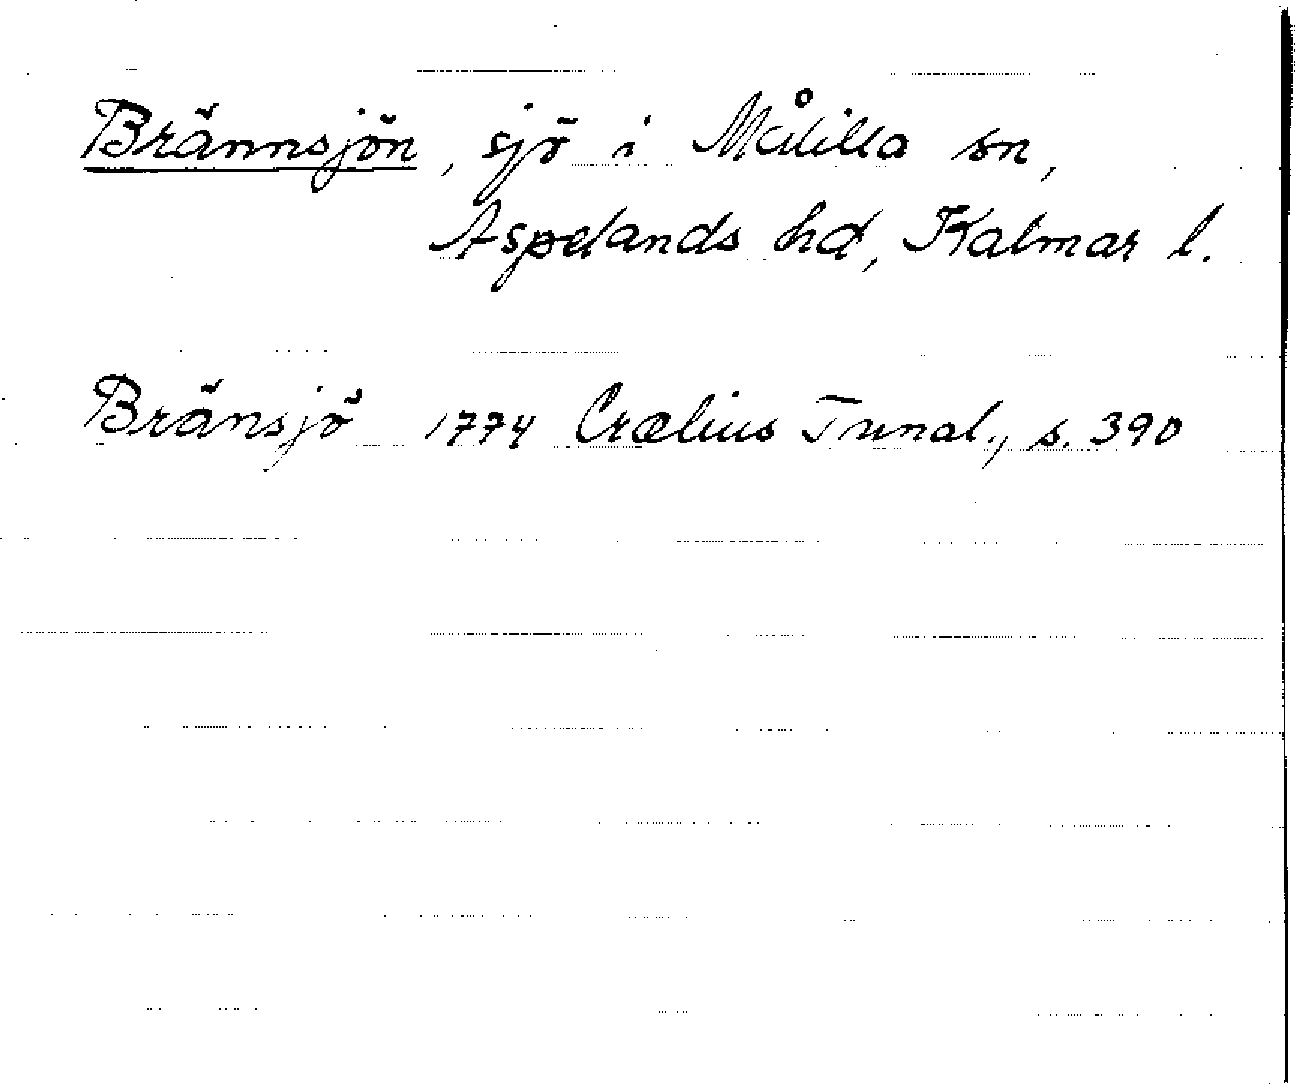 Brännsjön, sjö i Målilla sn,
Aspelands hd, Kalmar l.
Bränsjö 1774 Crælius Tunal., s. 390